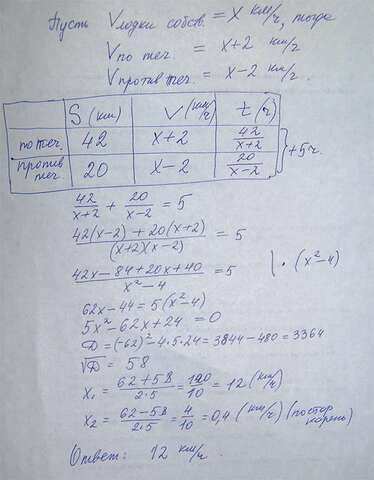 Пусть Vлодки собств. = x км/ч, тогда
Vпо теч. = x+2 км/ч
Vпротив теч. = x-2 км/ч
S (км) V (км/ч) t (ч)
по теч. 42 x+2 42/(x+2)
против теч. 20 x-2 20/(x-2)
+5ч.
42/(x+2) + 20/(x-2) = 5
(42(x-2) + 20(x+2))/((x+2)(x-2)) = 5
(42x-84+20x+40)/(x²-4) = 5 | · (x²-4)
62x-44 = 5(x²-4)
5x²-62x+24 = 0
D = (-62)²-4·5·24 = 3844-480 = 3364
√D = 58
x₁ = (62+58)/(2·5) = 120/10 = 12 (км/ч)
x₂ = (62-58)/(2·5) = 4/10 = 0,4 (км/ч) (постор. корень)
Ответ: 12 км/ч.